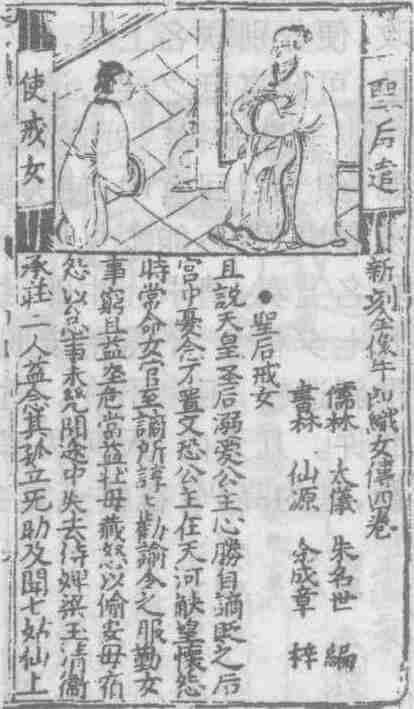 聖后遣
使戒女
新刻全像牛郎織女傳四卷
儒林 太儀 朱名世 編
書林 仙源 余成章 梓
●聖后戒女
且說天皇圣后溺愛公主心勝自謫貶之后
宮中憂念不置又恐公主在天河觖望懷怨
時常命女官至謫所諄々勸諭令之服勤女
事窮且益坚危當益壯毋藏怒以偷安毋宿
怨以怠事未幾聞途中失去侍婢梁玉清衛
承莊二人益念其孤立无助及聞七姑仙上